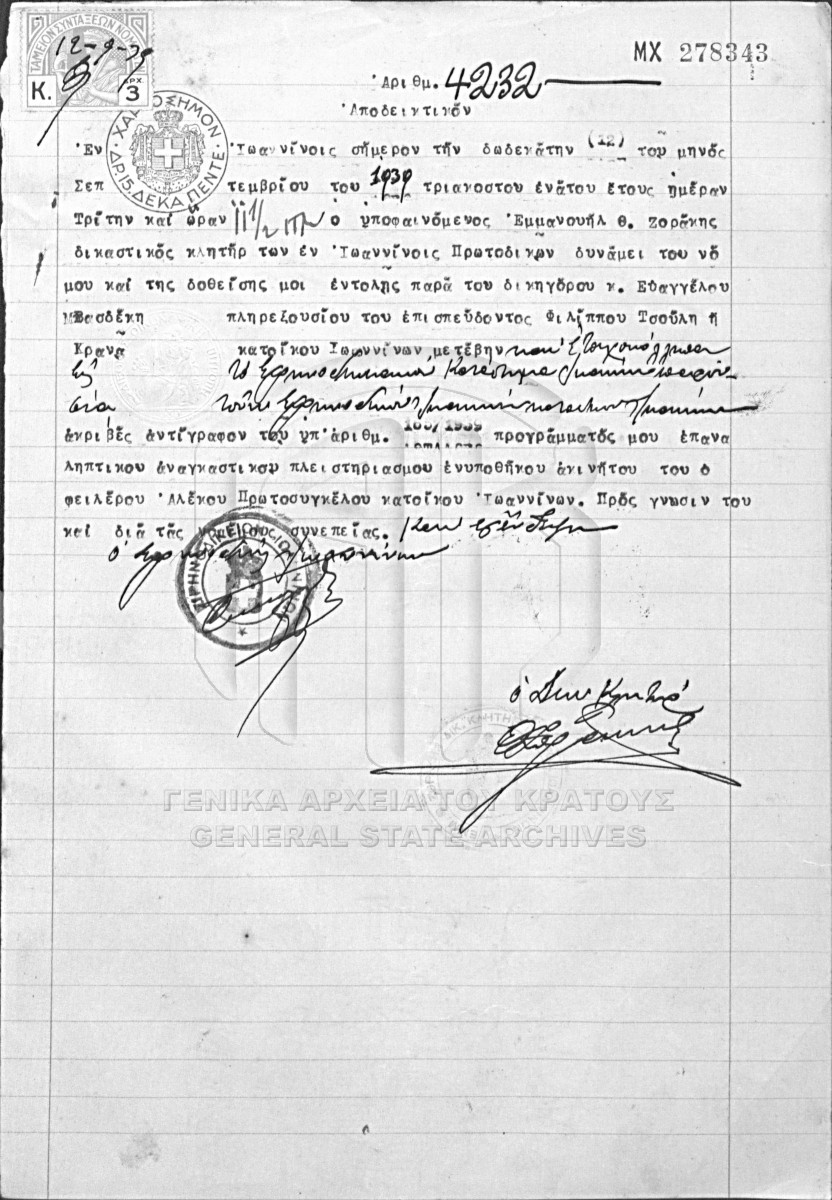 ΤΑΜΕΙΟΝ ΣΥΝΤΑΞΕΩΝ ΝΟΜΙΚ
12-9-39
Κ. ΔΡΧ 3
ΜΧ 278343
Ἀριθμ. 4232
Ἀποδεικτικόν
ΧΑΡΤΟΣΗΜΟΝ
ΔΡ15 ΔΕΚΑ ΠΕΝΤΕ
Ἐν Ἰωαννίνοις σήμερον τήν δωδεκάτην (12) του μηνός
Σεπ τεμβρίου του 1939 τριακοστου ἐνάτου ἔτους ἡμέραν
Τρίτην καί ὥραν 11 1/2 πμ ὁ ὑποφαινόμενος Ἐμμανουήλ Θ. Ζοράκης
δικαστικός κλητήρ των ἐν Ἰωαννίνοις Πρωτοδικων δυνάμει του νό
μου καί της δοθείσης μοι ἐντολης παρά του δικηγόρου κ. Εὐαγγέλου
Μβασδέκη πληρεξουσίου του ἐπισπεύδοντος Φιλίππου Τσούλη ἤ
Κρανᾶ κατοίκου Ἰωαννίνων μετέβην καί ἐτοιχοκόλλησα
εἰς τό Εἰρηνοδικειακόν Κατάστημα
ἀκριβές ἀντίγραφον του ὑπ' ἀριθμ. προγράμματός μου ἐπανα
ληπτικου ἀναγκαστικου πλειστηριασμου ἐνυποθήκου ἀκινήτου του ὀ
φειλέρου Ἀλέκου Πρωτοσυγκέλου κατοίκου Ἰωαννίνων. Πρός γνωσιν του
καί διά τάς νομίμους συνεπείας.
ὁ Εἰρηνοδίκης Ἰωαννίνων
ΕΙΡΗΝΟΔΙΚΕΙΟΝ ΙΩΑΝΝΙΝΩΝ
ὁ Δικ Κλητήρ
ΓΕΝΙΚΑ ΑΡΧΕΙΑ ΤΟΥ ΚΡΑΤΟΥΣ
GENERAL STATE ARCHIVES